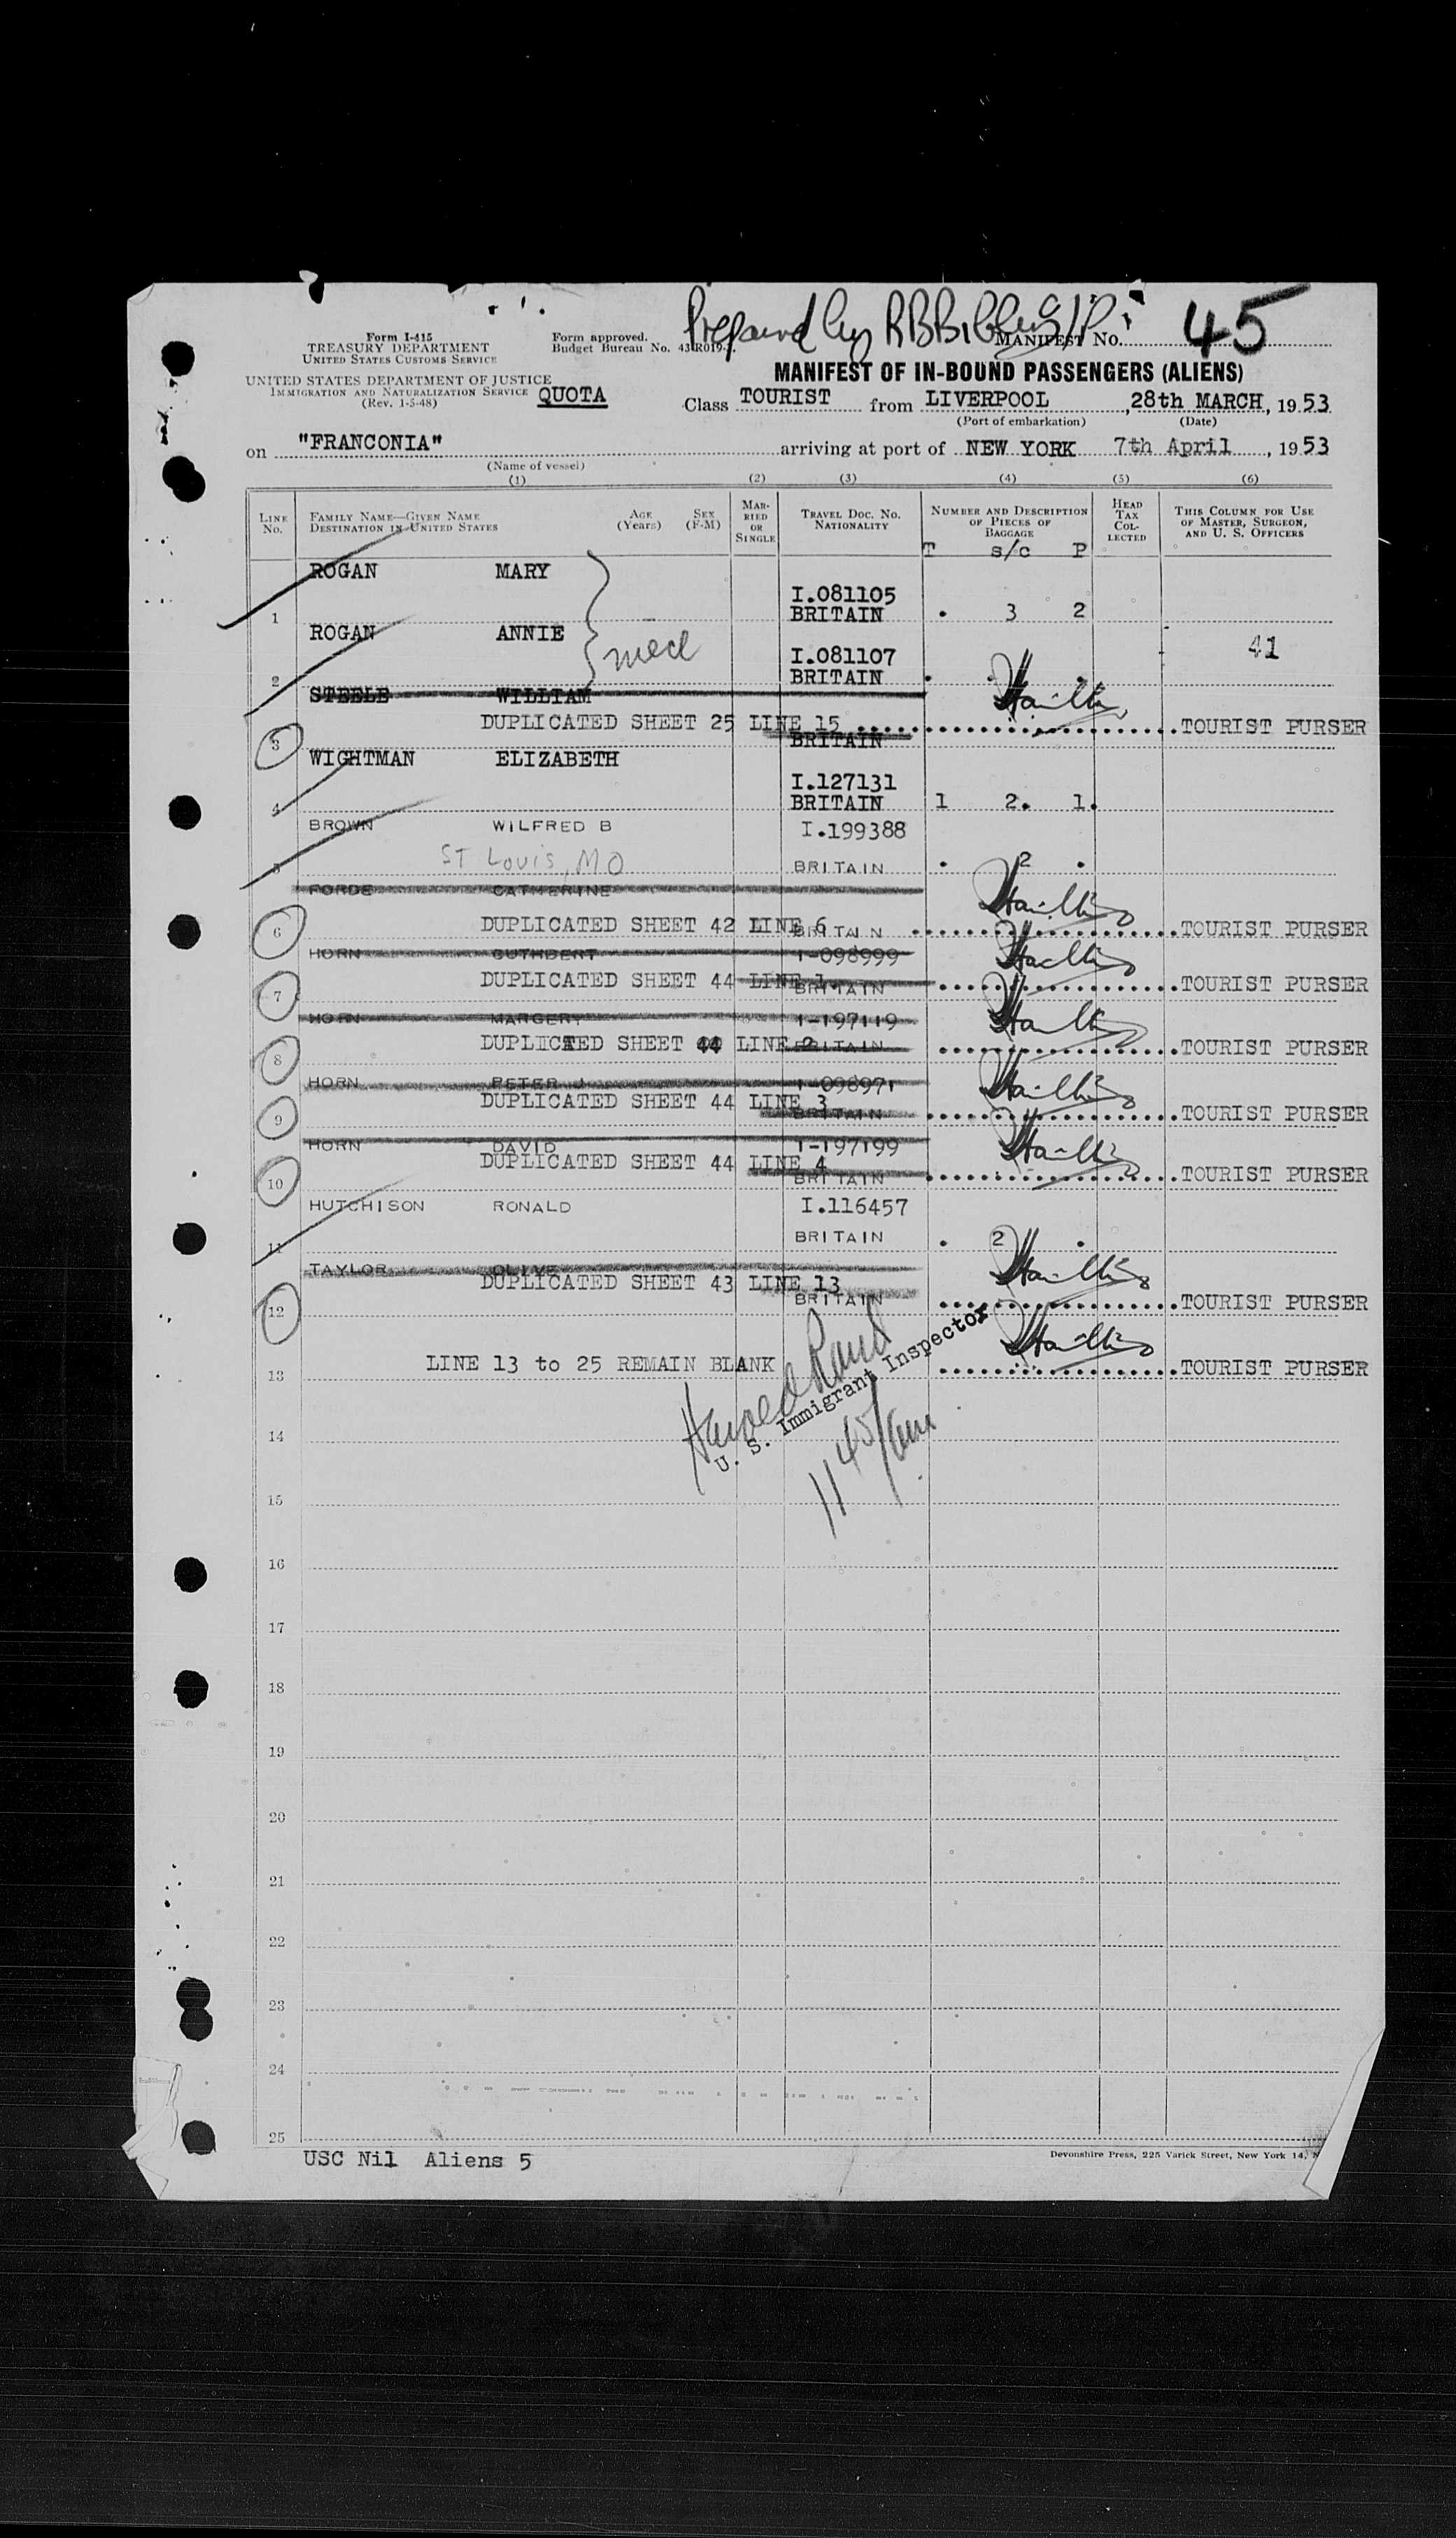 Prepared by
45
Form I-415
TREASURY DEPARTMENT
UNITED STATES CUSTOMS SERVICE
Form approved.
Budget Bureau No. 43-R019-
MANIFEST No.
UNITED STATES DEPARTMENT OF JUSTICE
IMMIGRATION AND NATURALIZATION SERVICE
(Rev. 1-5-48)
QUOTA
MANIFEST OF IN-BOUND PASSENGERS (ALIENS)
Class TOURIST from LIVERPOOL, 28th MARCH, 1953
(Port of embarkation) (Date)
on "FRANCONIA" arriving at port of NEW YORK 7th April, 1953
(Name of vessel)
(1) (2) (3) (4) (5) (6)
LINE No.
FAMILY NAME—GIVEN NAME
DESTINATION IN UNITED STATES
AGE (Years)
SEX (F-M)
MARRIED OR SINGLE
TRAVEL DOC. NO.
NATIONALITY
NUMBER AND DESCRIPTION OF PIECES OF BAGGAGE
HEAD TAX COLLECTED
THIS COLUMN FOR USE OF MASTER, SURGEON, AND U. S. OFFICERS
T s/c P
ROGAN MARY
I.081105
1 BRITAIN . 3 2
ROGAN ANNIE
med
41
I.081107
2 BRITAIN . . .
STEELE WILLIAM
DUPLICATED SHEET 25 LINE 15 TOURIST PURSER
3 BRITAIN
WIGHTMAN ELIZABETH
I.127131
4 BRITAIN 1 2. 1.
BROWN WILFRED B I.199388
5 ST LOUIS, MO BRITAIN . 2 .
FORDE CATHERINE
6 DUPLICATED SHEET 42 LINE 6 BRITAIN TOURIST PURSER
HORN CUTHBERT I-098999
7 DUPLICATED SHEET 44 LINE 1 BRITAIN TOURIST PURSER
HORN MARGERY I-197119
8 DUPLICTED SHEET 44 LINE 2 BRITAIN TOURIST PURSER
HORN PETER J I-098971
9 DUPLICATED SHEET 44 LINE 3 BRITAIN TOURIST PURSER
HORN DAVID I-197199
10 DUPLICATED SHEET 44 LINE 4 BRITAIN TOURIST PURSER
HUTCHISON RONALD I.116457
11 BRITAIN . 2 .
TAYLOR OLIVE
12 DUPLICATED SHEET 43 LINE 13 BRITAIN TOURIST PURSER
13 LINE 13 to 25 REMAIN BLANK TOURIST PURSER
U. S. Immigrant Inspector
11 45/am
14
15
16
17
18
19
20
21
22
23
24
25
USC Nil Aliens 5
Devonshire Press, 225 Varick Street, New York 14,